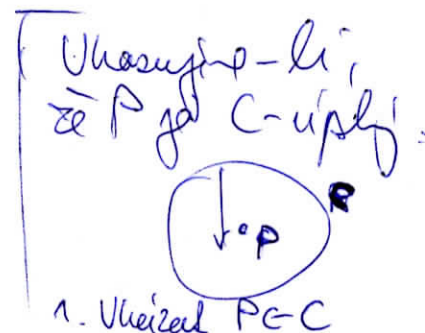 Ukazujeme-li,
že P je C-úplný:
P
R
1. Ukázat P∈C